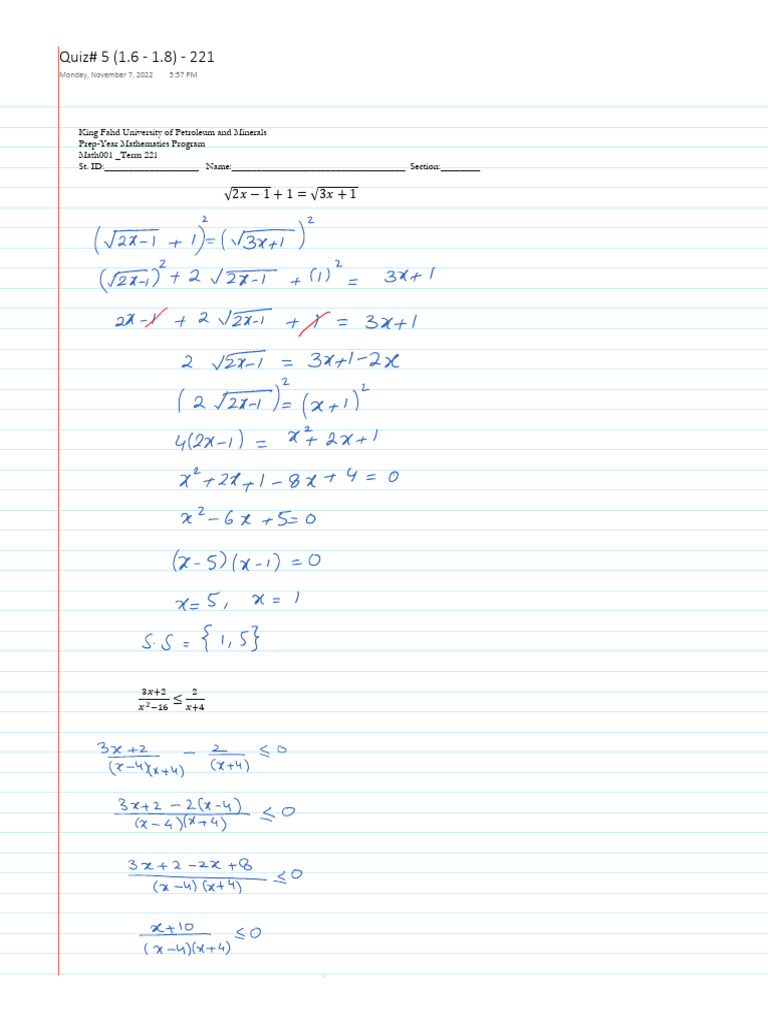 Quiz# 5 (1.6 - 1.8) - 221
Monday, November 7, 2022 3:57 PM
King Fahd University of Petroleum and Minerals
Prep-Year Mathematics Program
Math001 _Term 221
St. ID:___________________ Name:___________________________________ Section:________
√(2x − 1) + 1 = √(3x + 1)
(√(2x-1) + 1)² = (√(3x+1))²
(√(2x-1))² + 2 √(2x-1) + (1)² = 3x+1
2x - 1 + 2 √(2x-1) + 1 = 3x+1
2 √(2x-1) = 3x+1-2x
(2 √(2x-1))² = (x+1)²
4(2x-1) = x² + 2x + 1
x² + 2x + 1 - 8x + 4 = 0
x² - 6x + 5 = 0
(x-5)(x-1) = 0
x = 5, x = 1
S.S = {1, 5}
(3x+2)/(x²−16) ≤ 2/(x+4)
(3x+2)/((x-4)(x+4)) - 2/(x+4) ≤ 0
(3x+2 - 2(x-4))/((x-4)(x+4)) ≤ 0
(3x+2-2x+8)/((x-4)(x+4)) ≤ 0
(x+10)/((x-4)(x+4)) ≤ 0